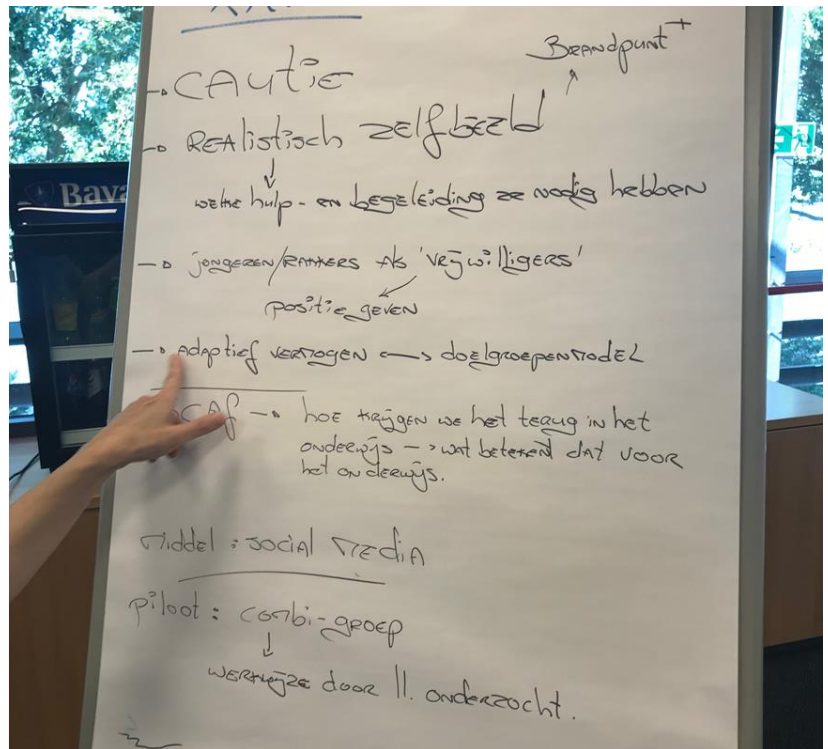 Brandpunt+
→ CAutie
→ REAlistisch zelfbeeld
↓
welke hulp- en begeleiding ze nodig hebben
Bava
→ jongeren/RAKKERS Als 'vrijwilligers'
positie geven
→ Adaptief vermogen <—> doelgroepenmodel
CAf → hoe krijgen we het terug in het
onderwijs —> wat betekent dat voor
het onderwijs.
Middel : social MEdiA
piloot : combi-groep
↓
werkwijze door ll. onderzocht.